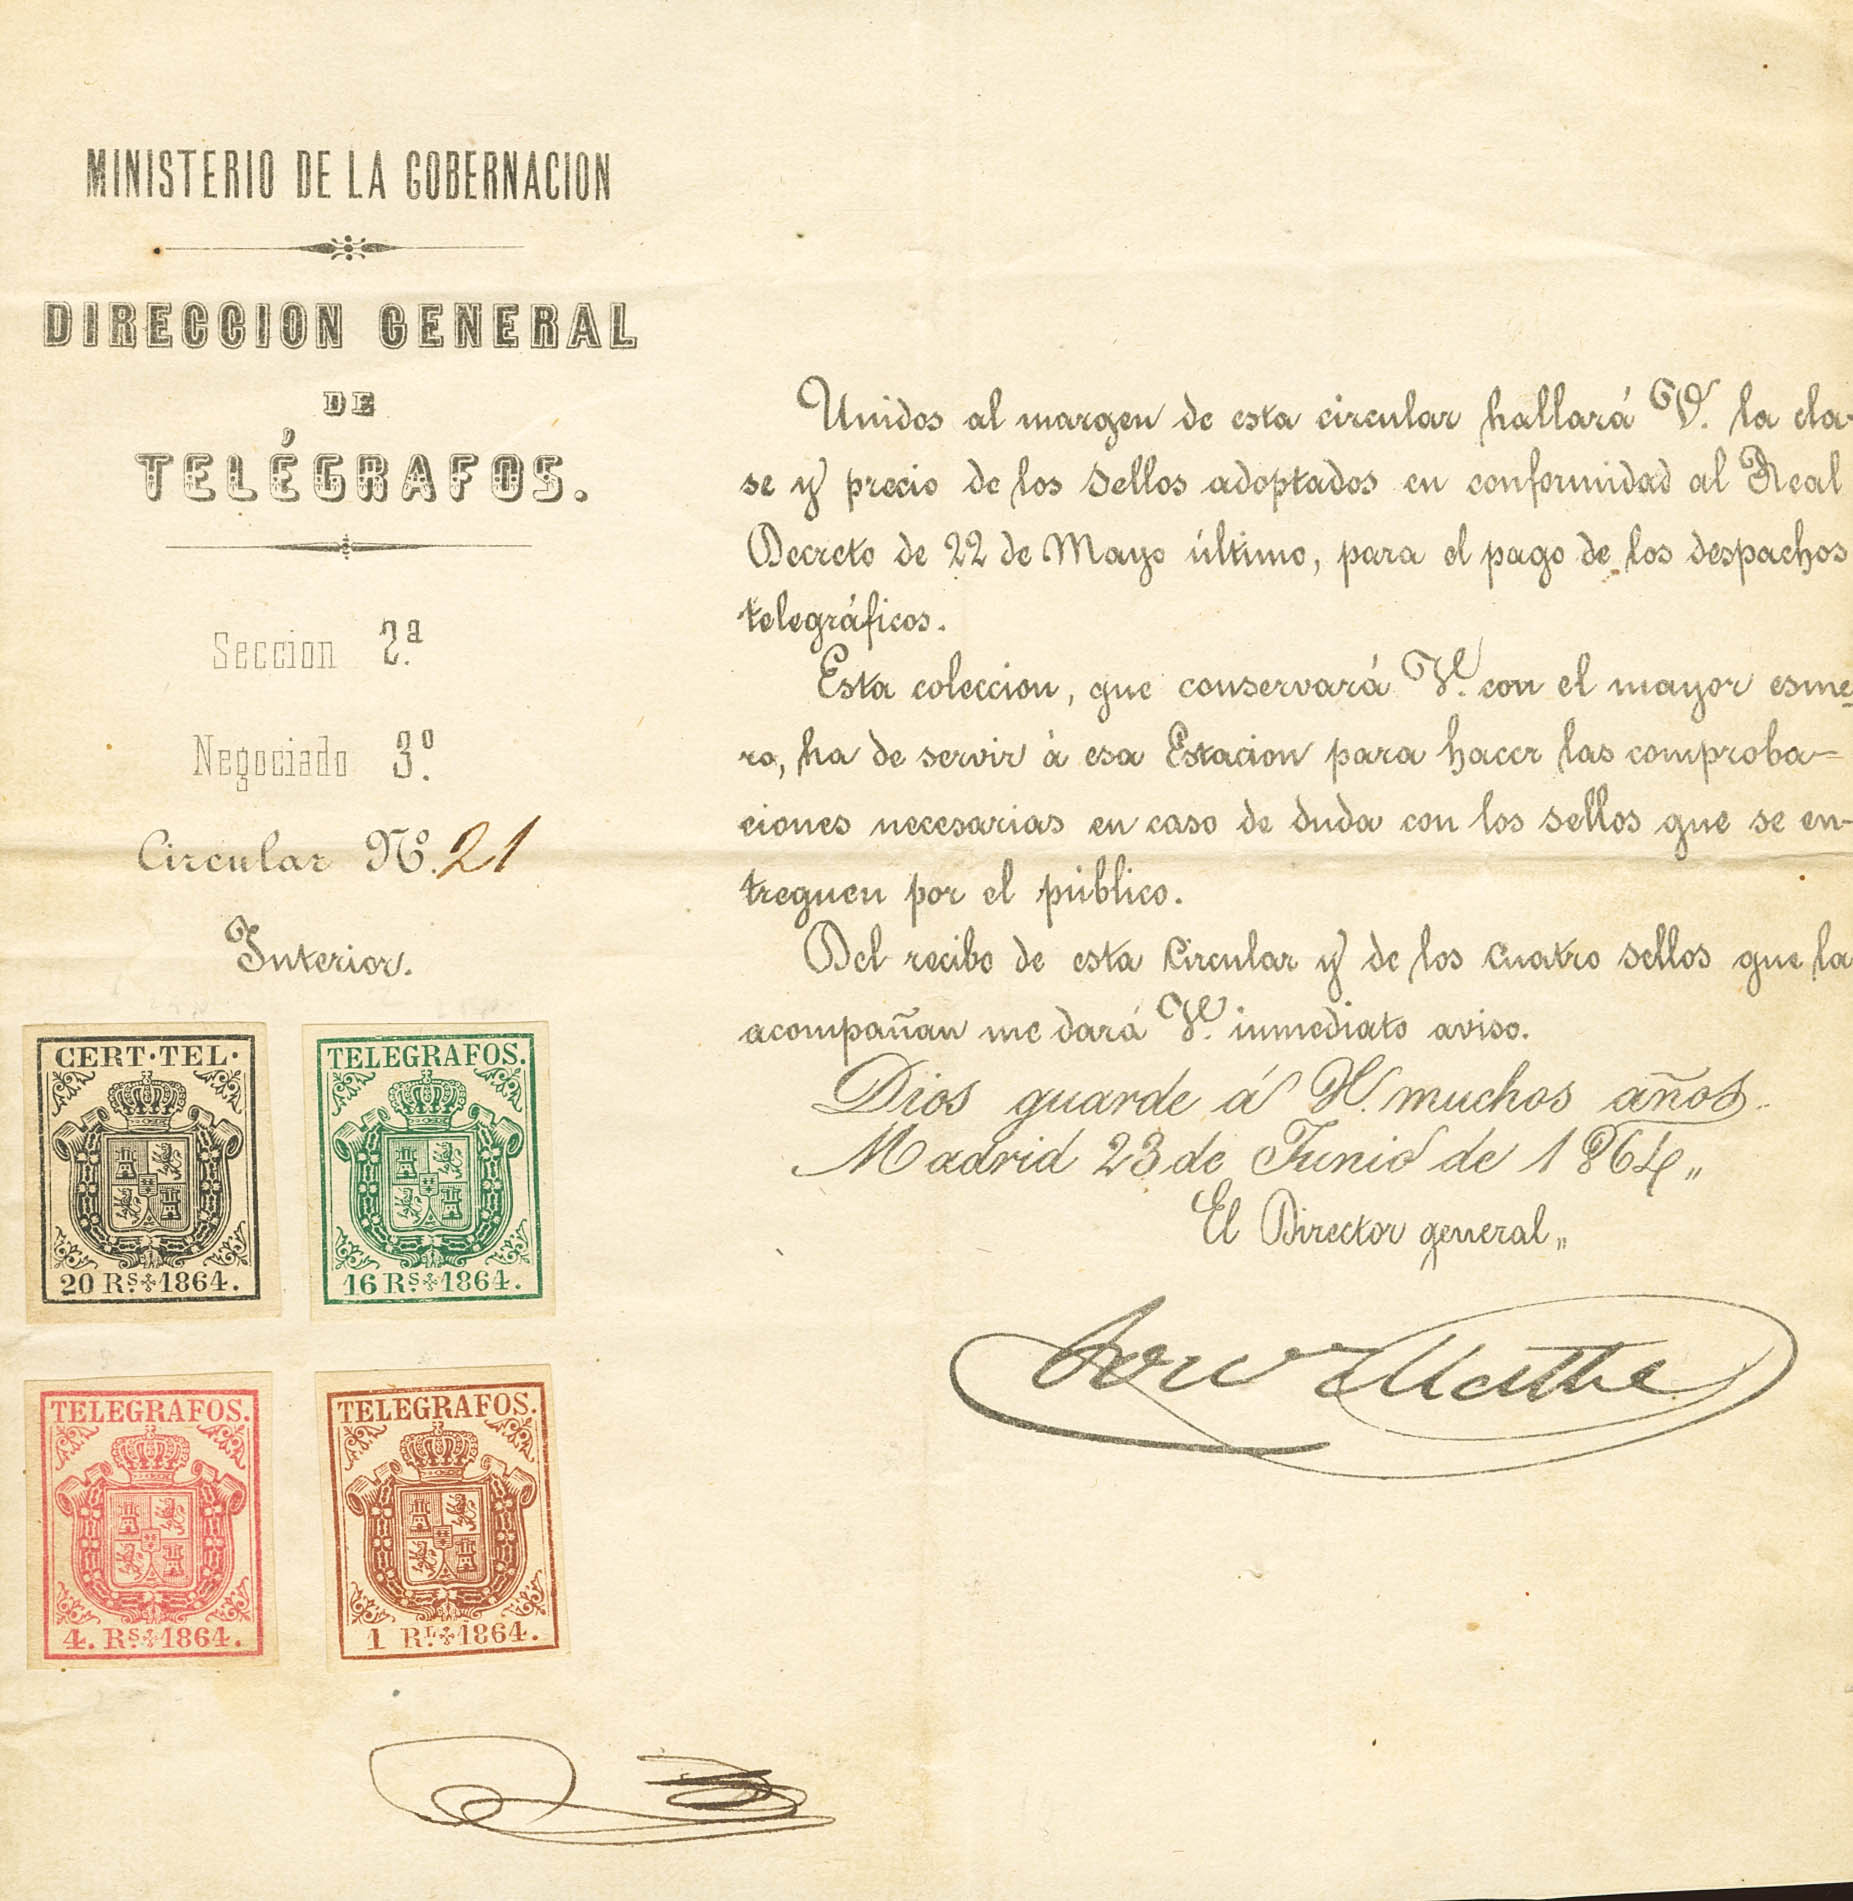 MINISTERIO DE LA GOBERNACION
DIRECCION GENERAL
DE
TELÉGRAFOS.
Seccion 2.ª
Negociado 3.º
Circular Nº. 21
Interior.
CERT·TEL·
20 Rs. 1864.
TELEGRAFOS.
16 Rs. 1864.
TELEGRAFOS.
4. Rs. 1864.
TELEGRAFOS.
1 Rl. 1864.
Unidos al margen de esta circular hallará V. la cla-
se y precio de los sellos adoptados en conformidad al Real
Decreto de 22 de Mayo último, para el pago de los despachos
telegráficos.
Esta coleccion, que conservará V. con el mayor esme-
ro, ha de servir à esa Estacion para hacer las comproba=
ciones necesarias en caso de duda con los sellos que se en-
treguen por el público.
Del recibo de esta Circular y de los cuatro sellos que la
acompañan me dará V. inmediato aviso.
Dios guarde á V. muchos años.
Madrid 23 de Junio de 1864„
El Director general„
Mathe